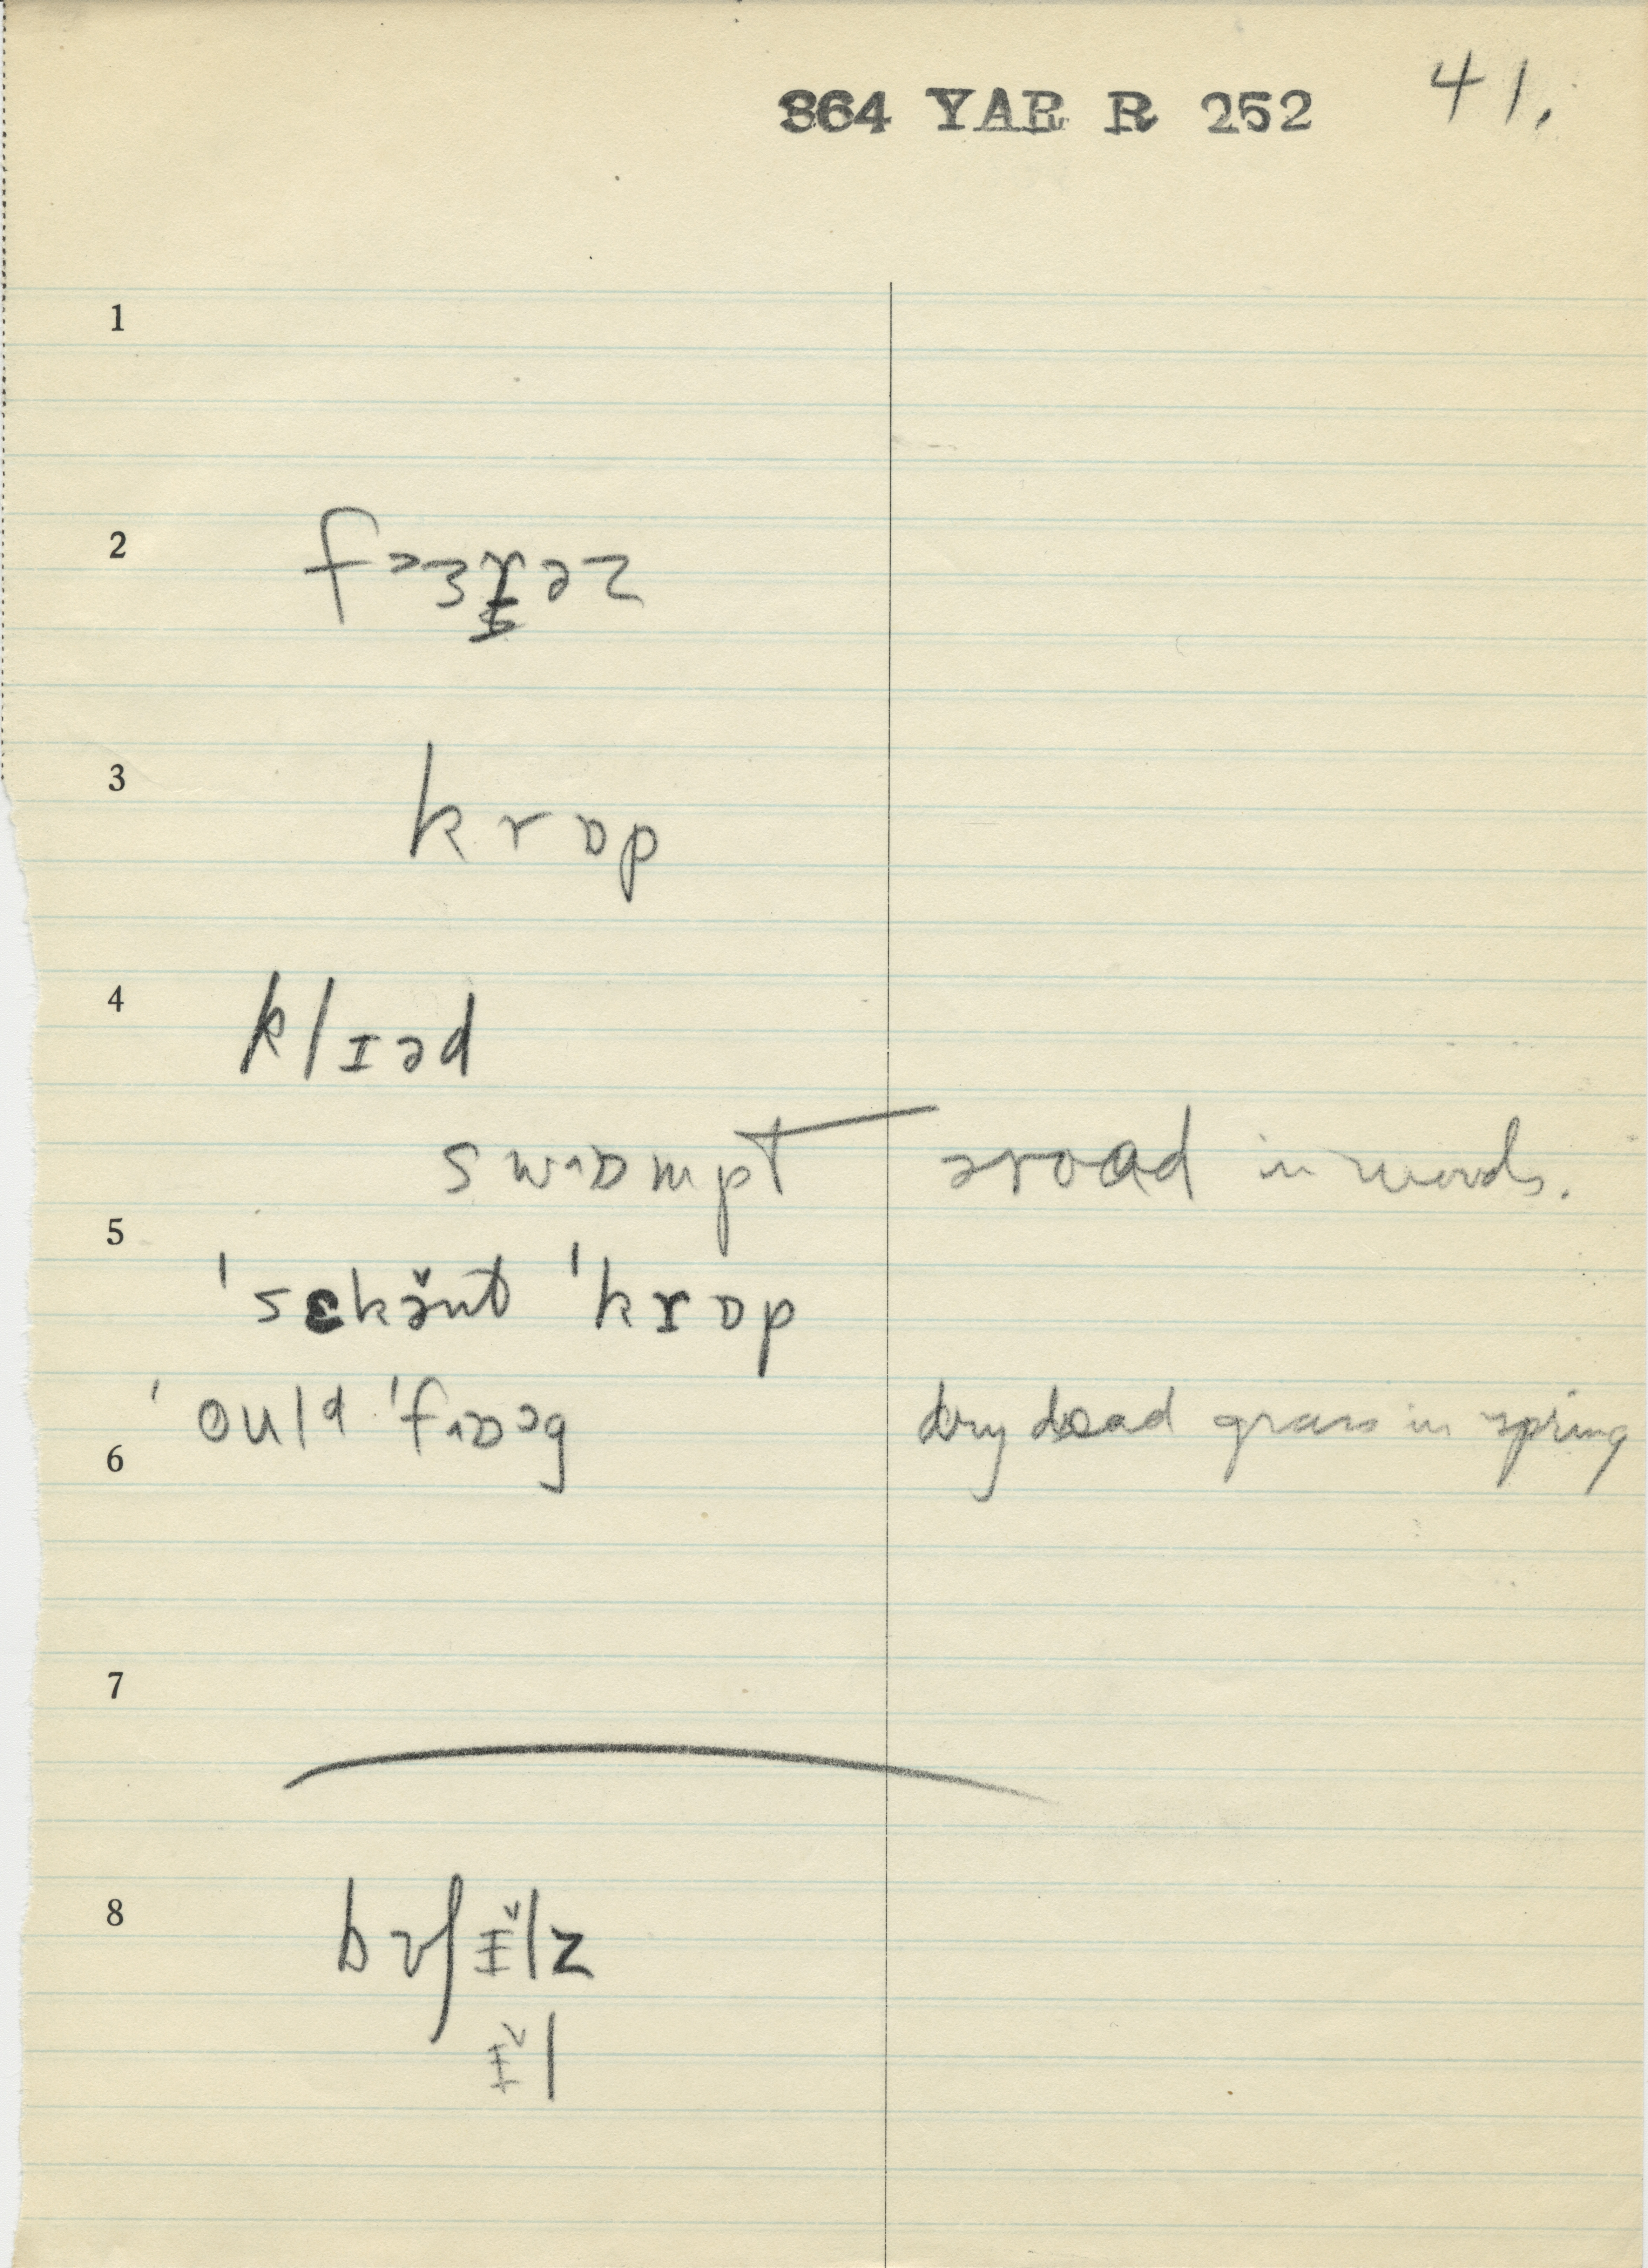 864 YAR R 252 41.
1
2
3 krɒp
4 klɪəd
swɒmpt ə road in woods.
5 'sɛkə̆nt 'krɒp
6 'ould 'fɒɔg dry dead grass in spring
7
8 bʊʃɪ̵̆lz
ɪ̵̆l